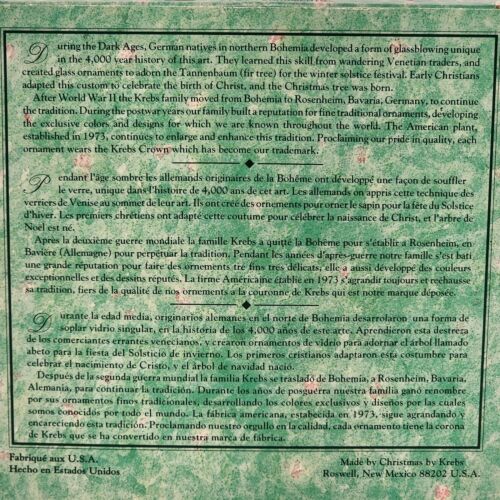 During the Dark Ages, German natives in northern Bohemia developed a form of glassblowing unique
in the 4,000 year history of this art. They learned this skill from wandering Venetian traders, and
created glass ornaments to adorn the Tannenbaum (fir tree) for the winter solstice festival. Early Christians
adapted this custom to celebrate the birth of Christ, and the Christmas tree was born.
After World War II the Krebs family moved from Bohemia to Rosenheim, Bavaria, Germany, to continue
the tradition. During the postwar years our family built a reputation for fine traditional ornaments, developing
the exclusive colors and designs for which we are known throughout the world. The American plant,
established in 1973, continues to enlarge and enhance this tradition. Proclaiming our pride in quality, each
ornament wears the Krebs Crown which has become our trademark.
Pendant l'âge sombre les allemands originaires de la Bohême ont développé une façon de souffler
le verre, unique dans l'histoire de 4,000 ans de cet art. Les allemands on appris cette technique des
verriers de Venise au sommet de leur art. Ils ont créé des ornements pour orner le sapin pour la fête du Solstice
d'hiver. Les premiers chrétiens ont adapté cette coutume pour célébrer la naissance de Christ, et l'arbre de
Noel est né.
Après la deuxième guerre mondiale la famille Krebs a quitté la Bohème pour s'établir a Rosenheim, en
Bavière (Allemagne) pour perpétuar la tradition. Pendant les années d'après-guerre notre famille s'est bati
une grande réputation pour faire des ornements tré fins trés délicats, elle a aussi développé des couleurs
exceptionnelles et des dessins réputés. La firme Américaine établie en 1973 s'agrandit toujours et réehausse
sa tradition, fiers de la qualité de nos ornements a la couronne de Krebs qui est notre marque déposée.
Durante la edad media, originarios alemanes en el norte de Bohemia desarrolaron una forma de
soplar vidrio singular, en la historia de los 4,000 años de este arte. Aprendieron esta destreza
de los comerciantes errantes venecianos, y crearon ornamentos de vidrio para adornar el árbol llamado
abeto para la fiesta del Solsticio de invierno. Los primeros cristianos adaptaron esta costumbre para
celebrar el nacimiento de Cristo, y el árbol de navidad nació.
Después de la segunda guerra mundial la familia Krebs se trasladó de Bohemia, a Rosenheim, Bavaria,
Alemania, para continuar la tradición. Durante los años de posguerra nuestra familia ganó renombre
por sus ornamentos finos tradicionales, desarrollando los colores exclusivos y diseños por las cuales
somos conocidos por todo el mundo. La fábrica americana, estabecida en 1973, sigue agrandando y
encareciendo esta tradición. Proclamando nuestro orgullo en la calidad, cada ornamento tiene la corona
de Krebs que se ha convertido en nuestra marca de fábrica.
Fabriqué aux U.S.A.
Hecho en Estados Unidos
Made by Christmas by Krebs
Roswell, New Mexico 88202 U.S.A.